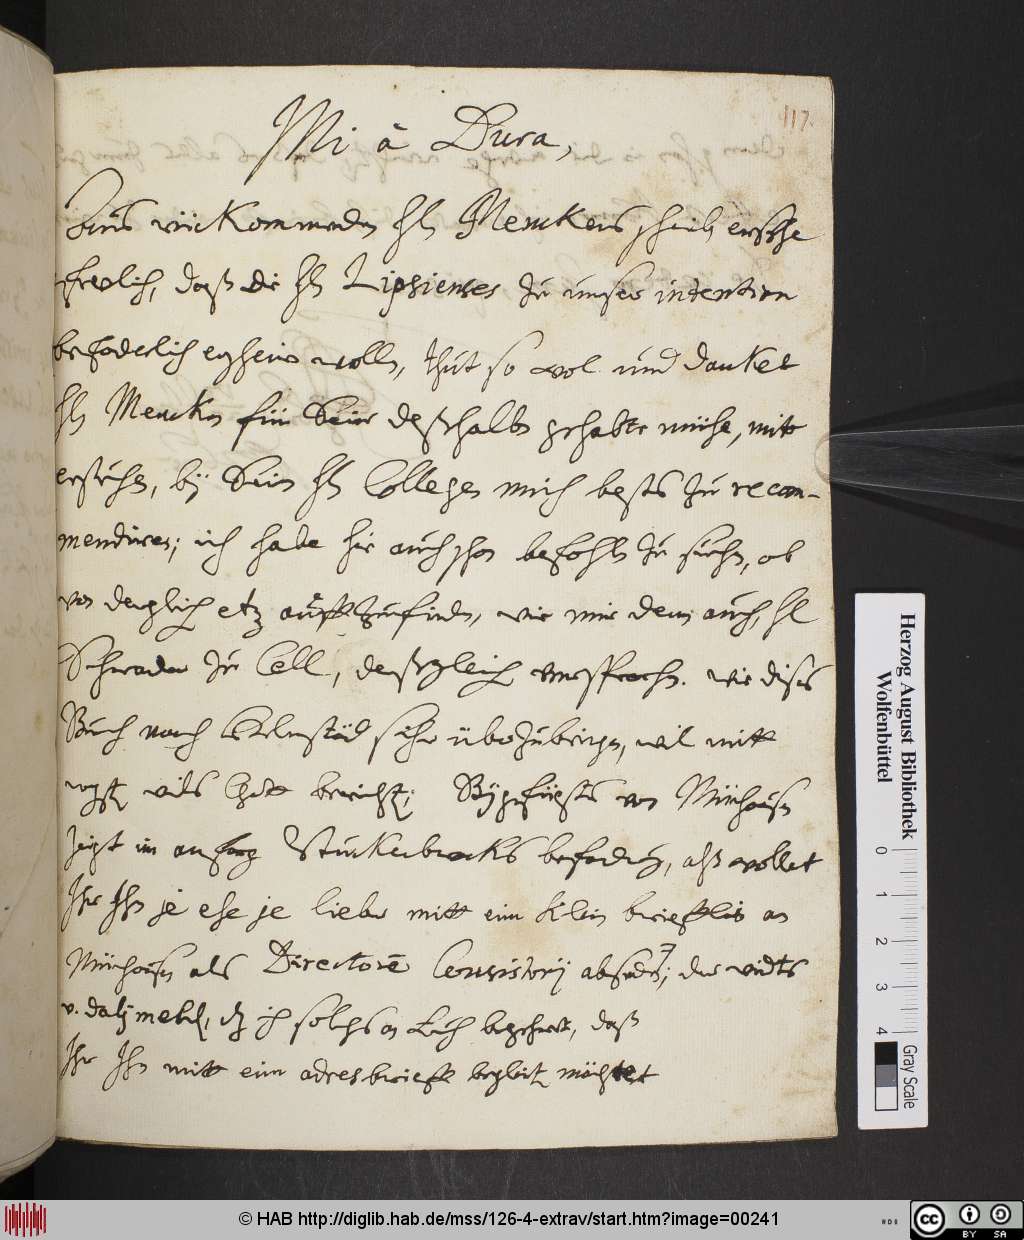 117.
Mi à Dura,
Aus rückkommenden Hl Menckens schreiben ersehe
frölich, daß die Hl Lipsienses zu unser intention
befoderlich erscheinen wolln, thut so wol und dancket
Hl Mencken für seine deßhalben gehabte mühe, mitt
ersuchen, bij Sein Hl Collegen mich bestes zu recom-
mendiren; ich habe hie auch schon befohln zu suchen, ob
von derglichen etz auffzufinden, wie mir denn auch, Hl
Schrader zu Cell, deßgleichen versprochen. wie dises
Buch nach Helmstäd sehr überzubringen, wil mitt
vils berichten; Bijgefügtes von Münchausn
zeigt im anfang Stuckenbrocks befodrung, alß wollet
Ihr Ihn je ehe je lieber mitt eim klein brieffln an
Münchausn als Directorē Consistorij absenden; der
v. daß ich solches an Euch begehret, daß
Ihr Ihn mitt eim adresbrieff begleiten möchtet
Herzog August Bibliothek
Wolfenbüttel
0 1 2 3 4
Gray Scale
© HAB http://diglib.hab.de/mss/126-4-extrav/start.htm?image=00241
cc BY SA